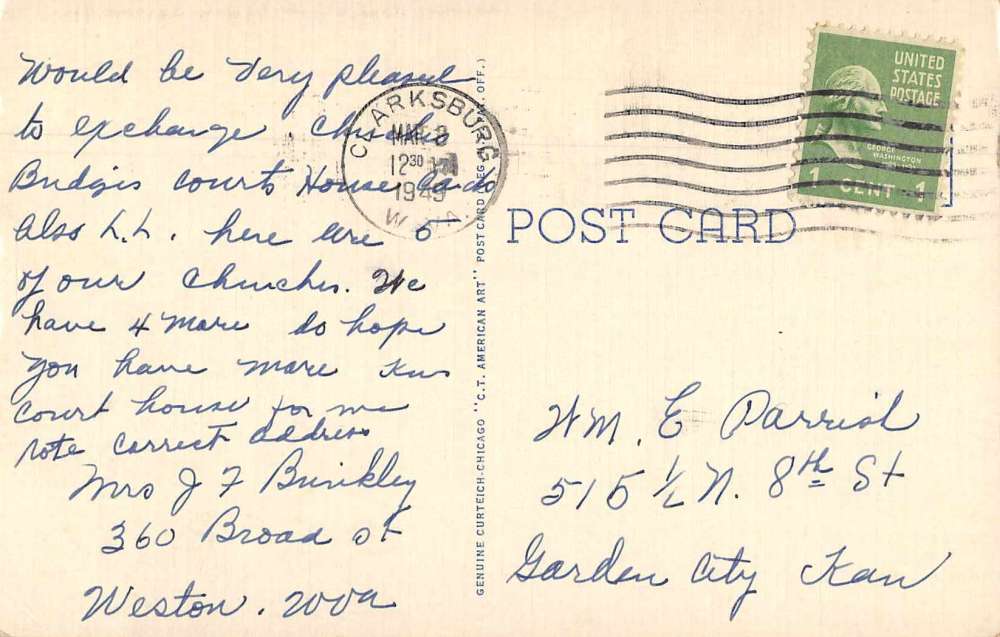 Would be very pleased
to exchange Churches
Bridges courts House Cards
also L.L. here are 5
of our Churches. We
have 4 more do hope
you have more Kans
court house for me
note correct address
Mrs J F Brinkley
360 Broad St
Weston. W Va
CLARKSBURG
MAR 3
12 30 PM
1949
W. VA.
GENUINE CURTEICH-CHICAGO "C.T. AMERICAN ART" POST CARD (REG. U.S. PAT. OFF.)
UNITED
STATES
POSTAGE
GEORGE
WASHINGTON
1 CENT 1
POST CARD
Wm. E Parrish
515 1/2 N. 8th St
Garden City Kan